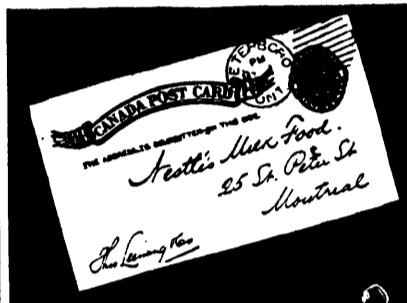 PETERBORO
PM
ONT
CANADA POST CARD
THE ADDRESS TO BE WRITTEN ON THIS SIDE.
Nestlé's Milk Food.
25 St. Peter St
Montreal